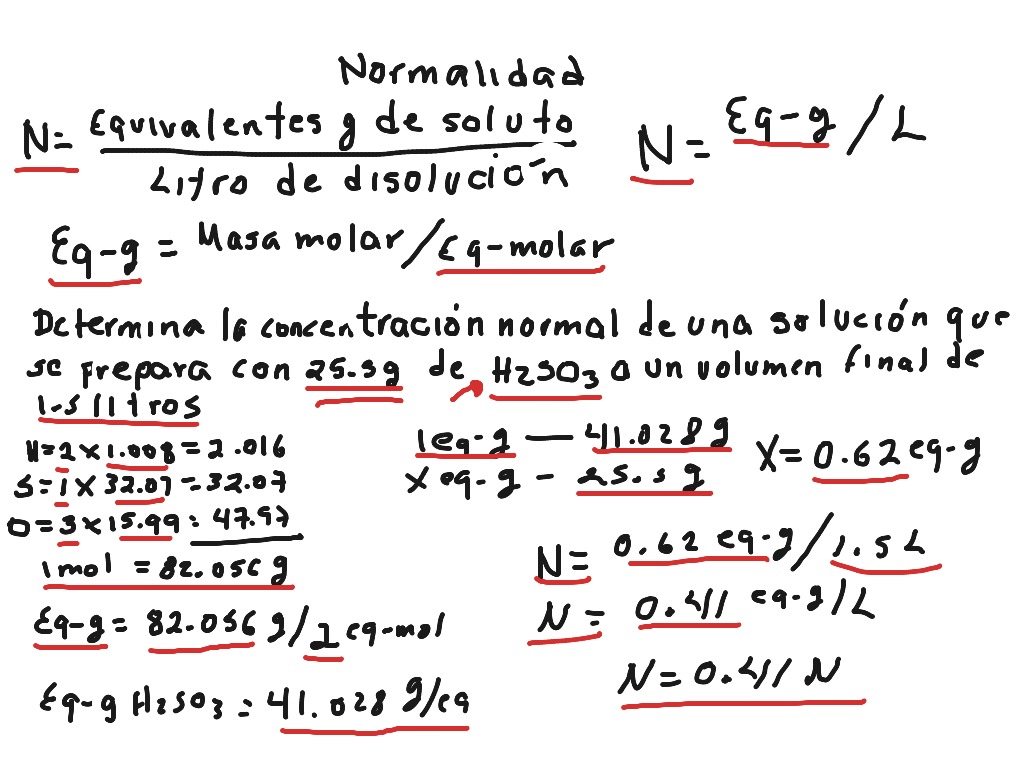 Normalidad
N= Equivalentes g de soluto
Litro de disolución
N= Eq-g/L
Eq-g = Masa molar/Eq-molar
Determina la concentración normal de una solución que
se prepara con 25.5g de H2SO3 a un volumen final de
1.5 litros
H=2x1.008=2.016
S=1x32.07=32.07
O=3x15.99=47.97
1mol=82.056g
Eq-g=82.056g/2eq-mol
Eq-g H2SO3=41.028g/eq
1eq-g—41.028g
Xeq-g-25.5g
X=0.62eq-g
N=0.62eq-g/1.5L
N=0.411eq-g/L
N=0.411N